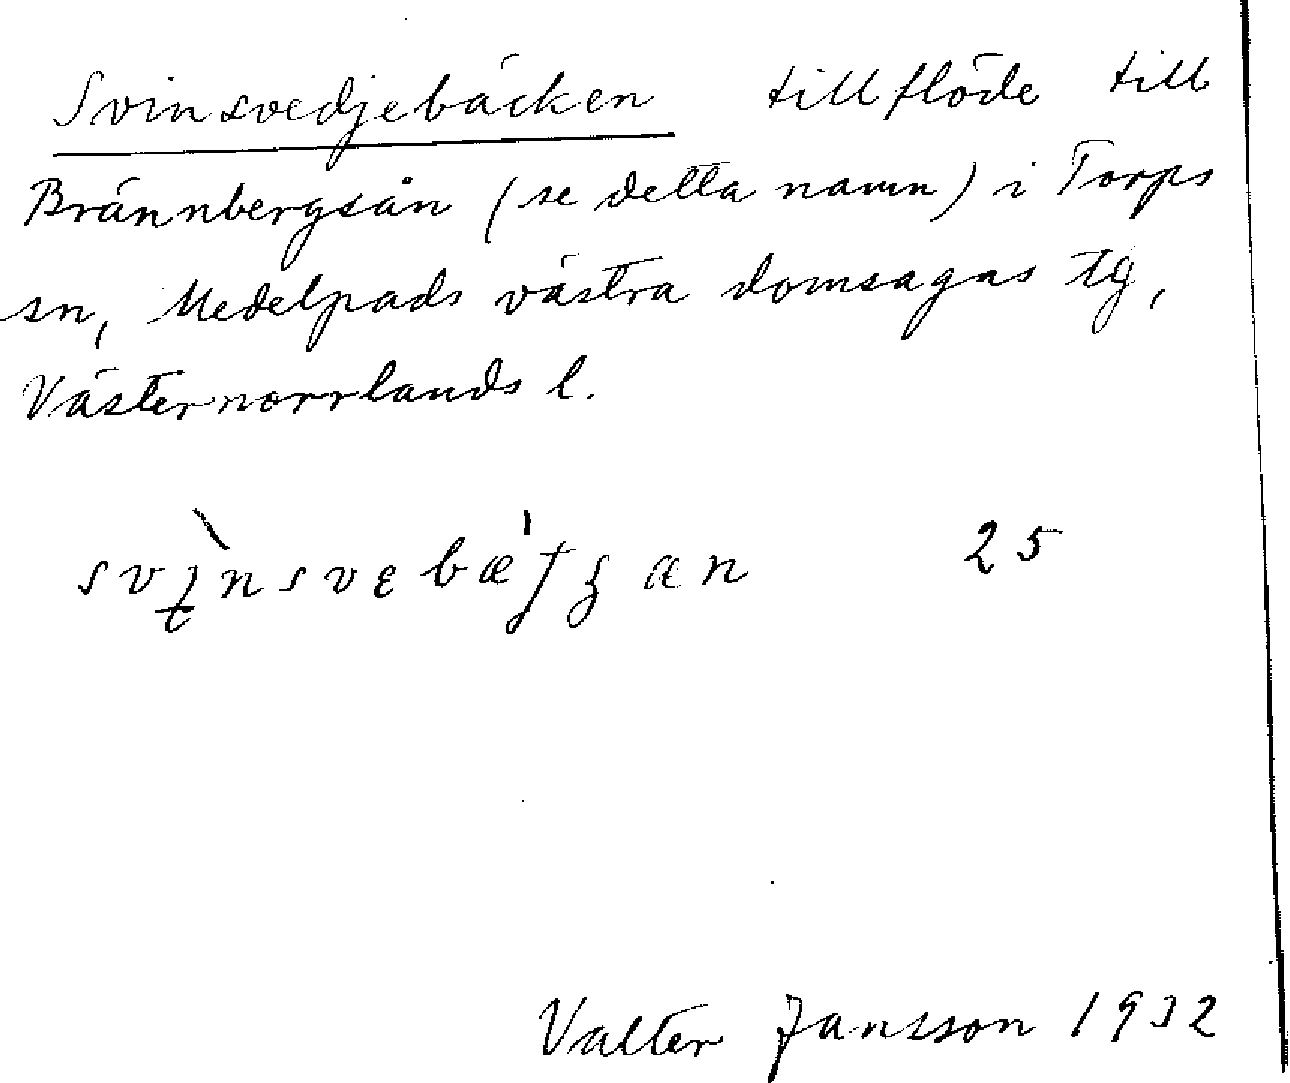 Svinsvedjebäcken tillflöde till
Brännbergsån (se detta namn) i Torps
sn, Medelpads västra domsagas tg,
Västernorrlands l.
25
Valter Jansson 1932